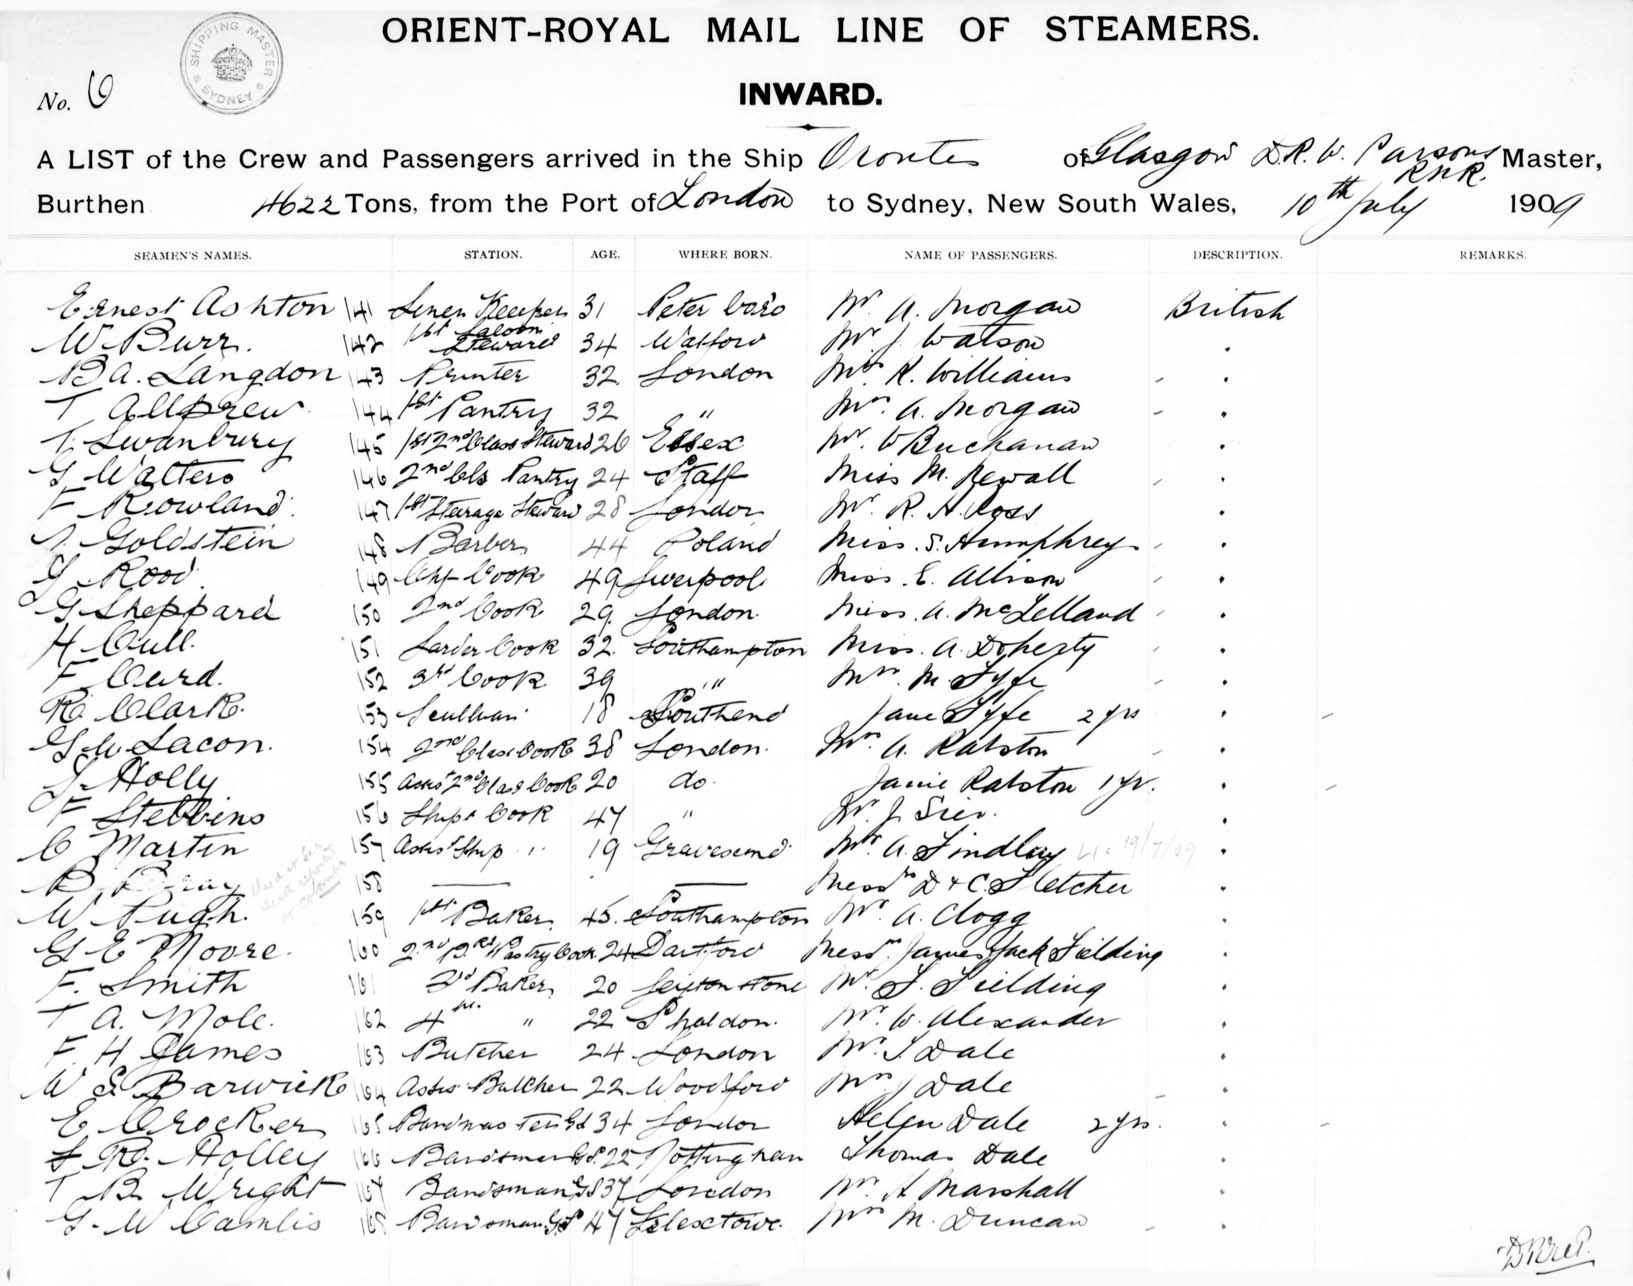 ORIENT-ROYAL MAIL LINE OF STEAMERS.
SHIPPING MASTER SYDNEY
No. 6
INWARD.
A LIST of the Crew and Passengers arrived in the Ship Orontes of Glasgow D.R.W. Parsons RNR. Master,
Burthen 4622 Tons, from the Port of London to Sydney, New South Wales, 10th July 1909
SEAMEN'S NAMES. STATION. AGE. WHERE BORN. NAME OF PASSENGERS. DESCRIPTION. REMARKS.
Ernest Ashton 141 Linen Keeper 31 Peterboro Mr. A. Morgan British
W Burr. 142 1st Saloon Steward 34 Watford Mr J. Watson
B A. Langdon 143 Printer 32 London K. Williams
T 144 1st Pantry 32 " Mrs A. Morgan
T. Swanbury 145 2nd Class Steward 26 Essex Mr. Buchanan
G Walters 146 2nd Cls Pantry 24 Staff Miss M. Rewall
F Rowland. 147 1st Steerage Steward 28 London Mr. R. H. Ross
Goldstein 148 Barber 44 Poland Miss. S. Humphrey
Rood 149 Chf Cook 49 Liverpool Miss. E. Allison
G Sheppard 150 2nd Cook 29 London Miss. A. McLelland
H Cull. 151 Larder Cook 32 Southampton Miss. A. Doherty
F. Curd. 152 3rd Cook 39 " Mrs. M. Fyfe
R Clark. 153 Scullman 18 Southend Jane Fyfe 2 yrs
G W Lacon. 154 2nd Class Cook 38 London. Mrs A. Ralston
Holly 155 Asst 2nd Class Cook 20 do. Janie Ralston 1 yr.
F Stebbins 156 Ships Cook 47 " Mr. J.
C Martin 157 Asst Ship " 19 Gravesend A. Findlay 19/7/09
B. Bray 158 Messrs D & C. Fletcher
W Pugh. 159 1st Baker 45. Southampton Mr. A. Clogg
G E Moore. 160 2nd Br Pastry Cook 24 Dartford Messrs. James Jack Fielding
F. Smith 161 3rd Baker 20 Leytonstone Mr. Fielding
T A. Mole. 162 4th " 22 Mr. W. Alexander
F. H. James 163 Butcher 24 London Mr. Dale
W E Barwick 164 Asst Butcher 22 Woodford Mrs J Dale
E Crocker 165 Bandmaster 34 London Helen Dale 2 yrs.
R. Holley 166 Bandsman 22 Nottingham Thomas Dale
T B Wright 167 Bandsman 37 London Mr. A Marshall
G. W 168 Bandsman 47 Felexstowe Mrs M. Duncan